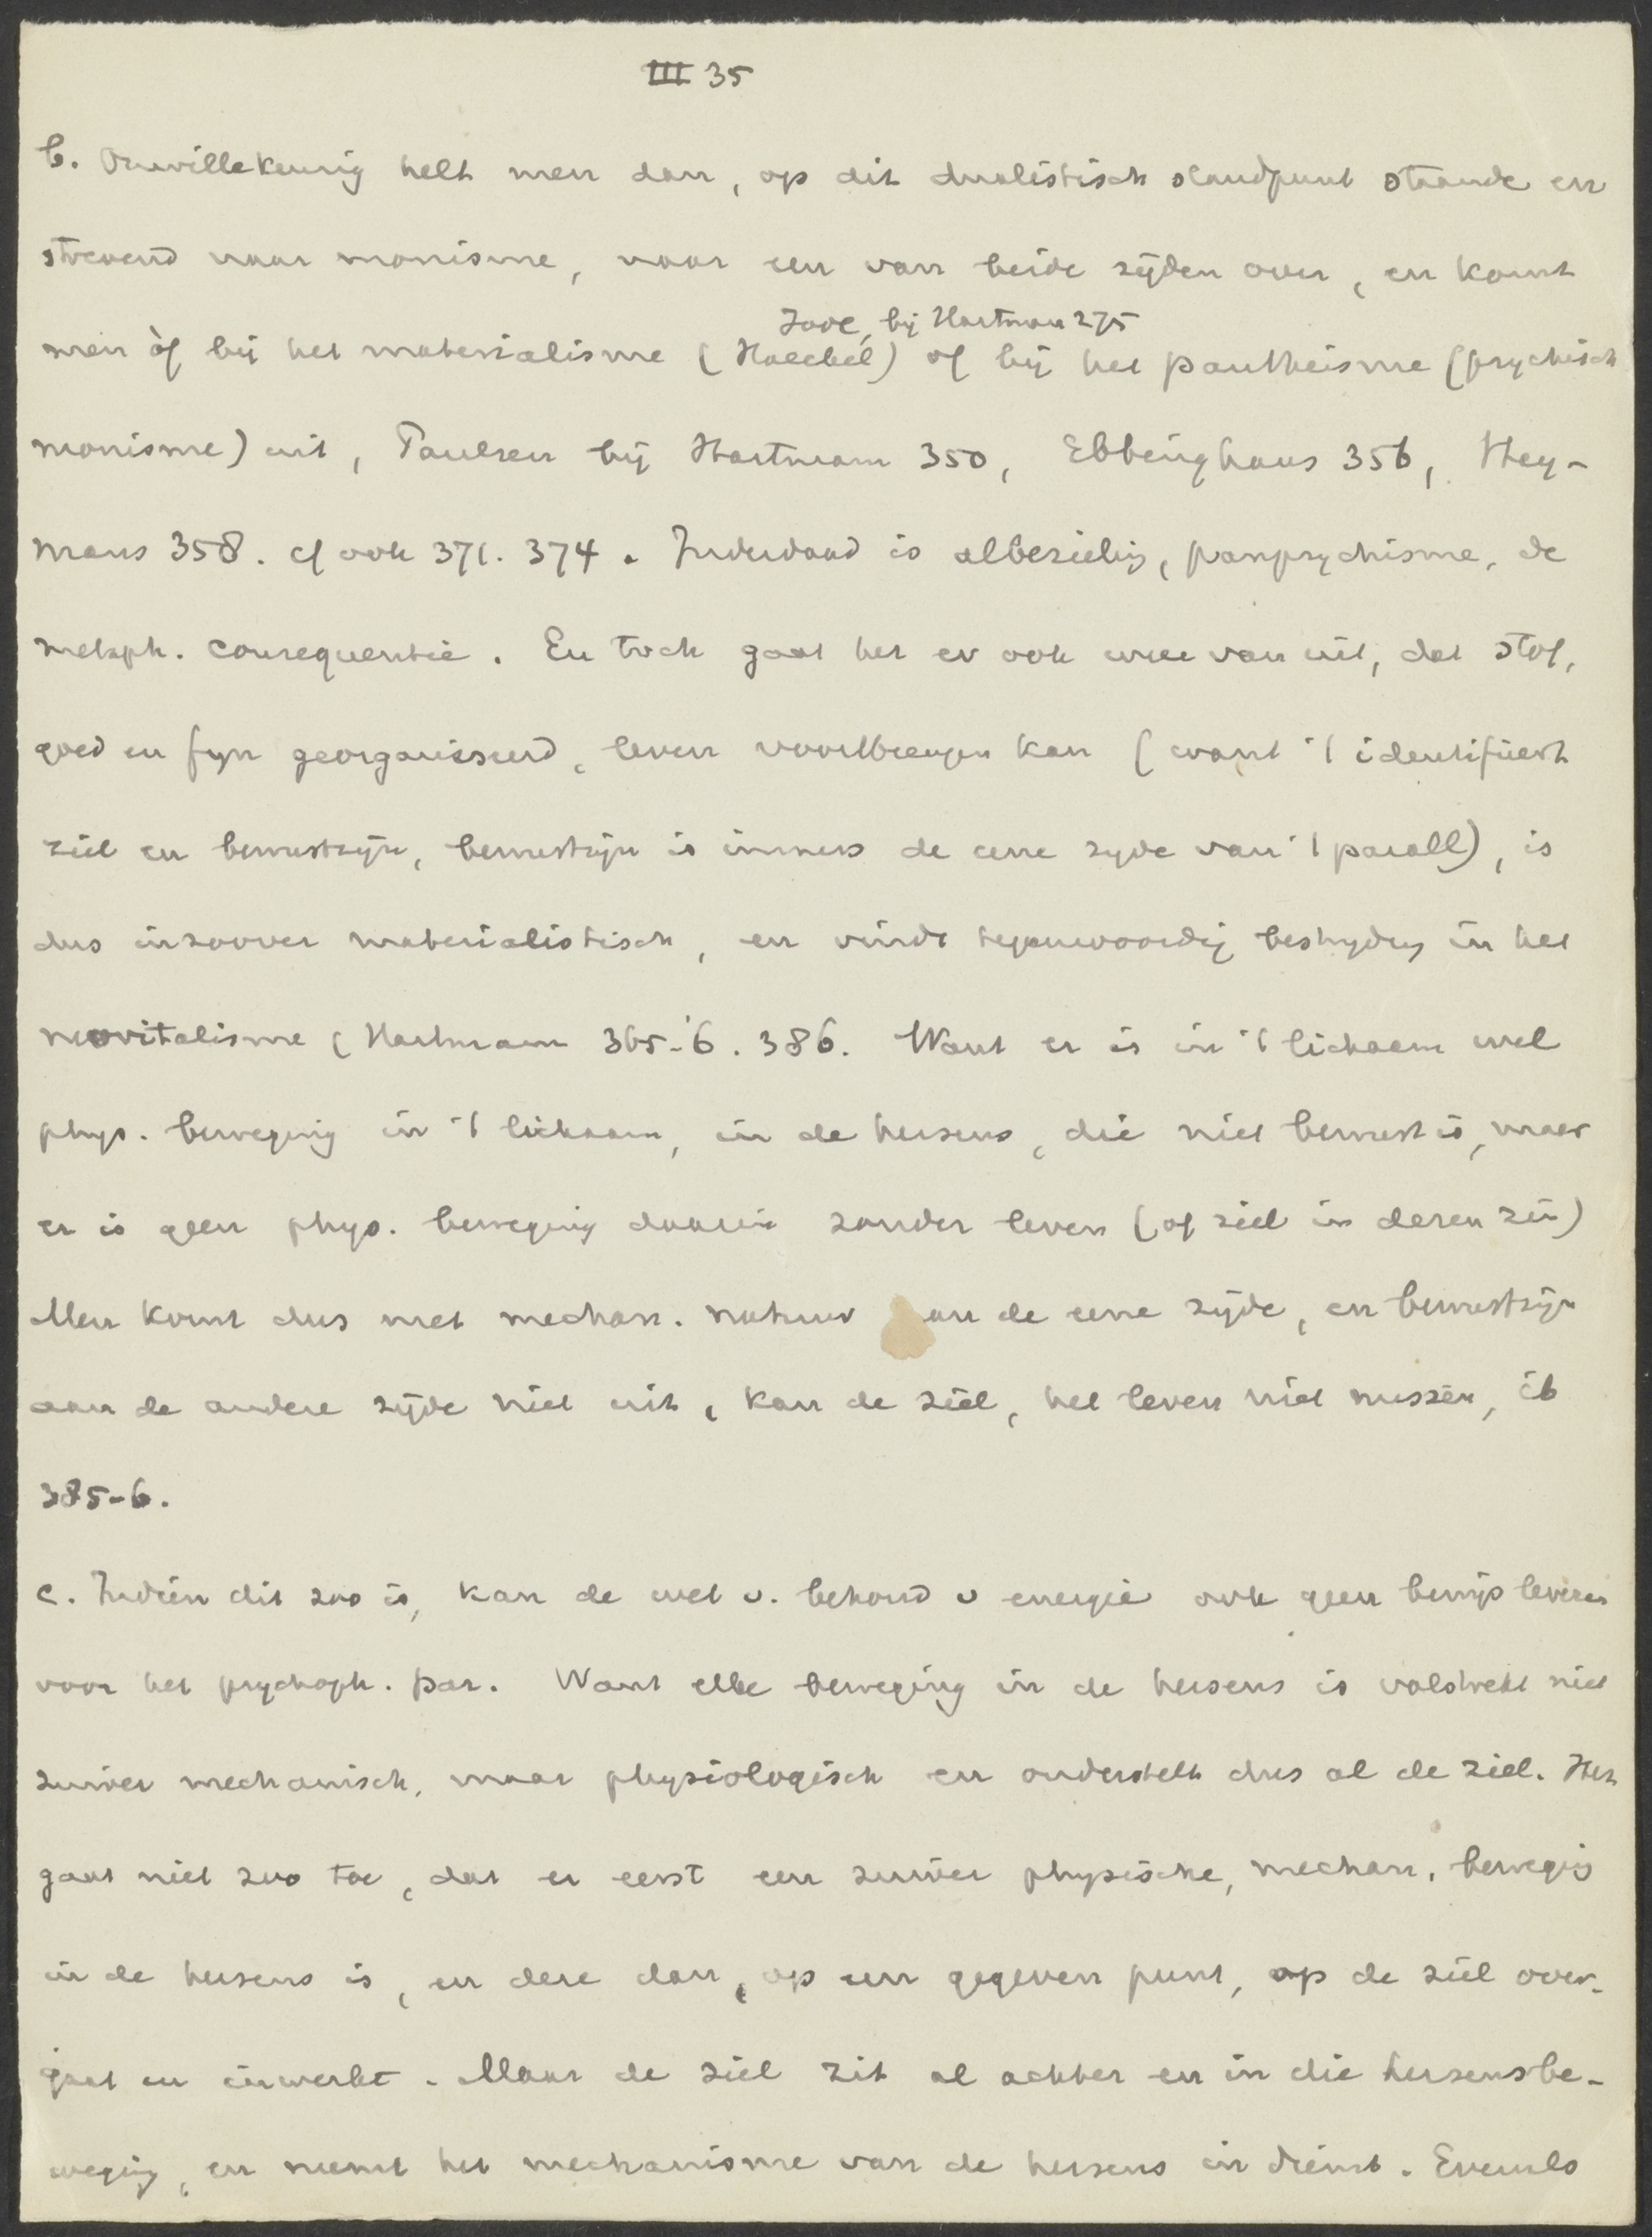 III 35
b. Onwillekeurig helt men dan, op dit dualistisch standpunt staande en
strevend naar monisme, naar een van beide zijden over, en komt
Jodl, bij Hartman 275
men òf bij het materialisme (Haeckel) of bij het pantheisme (psychisch
monisme) uit, Paulsen bij Hartmann 350, Ebbinghaus 356, Hey-
mans 358. cf ook 371. 374. Inderdaad is albezielig, panpsychisme, de
metaph. consequentie. En toch gaat het er ook weer van uit, dat stof,
goed en fijn georganiseerd, leven voortbrengen kan (want 't identifieert
ziel en bewustzijn, bewustzijn is immers de eene zyde van 't parall), is
dus inzoover materialistisch, en vindt tegenwoordig bestryding in het
neovitalisme (Hartmann 365-6. 386. Want er is in 't lichaam wel
phys. beweging in 't lichaam, in de hersens, die niet bewust is, maar
er is geen phys. beweging daarin zonder leven (of ziel in deren zin)
Men komt dus met mechan. natuur aan de eene zijde, en bewustzijn
aan de andere zijde niet uit, kan de ziel, het leven niet missen, ib
385-6.
c. Indien dit zoo is, kan de wet v. behoud v energie ook geen bewijs leveren
voor het psychoph. par. Want elke beweging in de hersens is volstrekt niet
zuiver mechanisch, maar physiologisch en onderstelt dus al de ziel. Het
gaat niet zoo toe, dat er eerst een zuiver physische, mechan. beweging
in de hersens is, en deze dan, op een gegeven punt, op de ziel over-
gaat en inwerkt. Maar de ziel zit al achter en in die hersensbe-
weging, en neemt het mechanisme van de hersens in dienst. Evenals